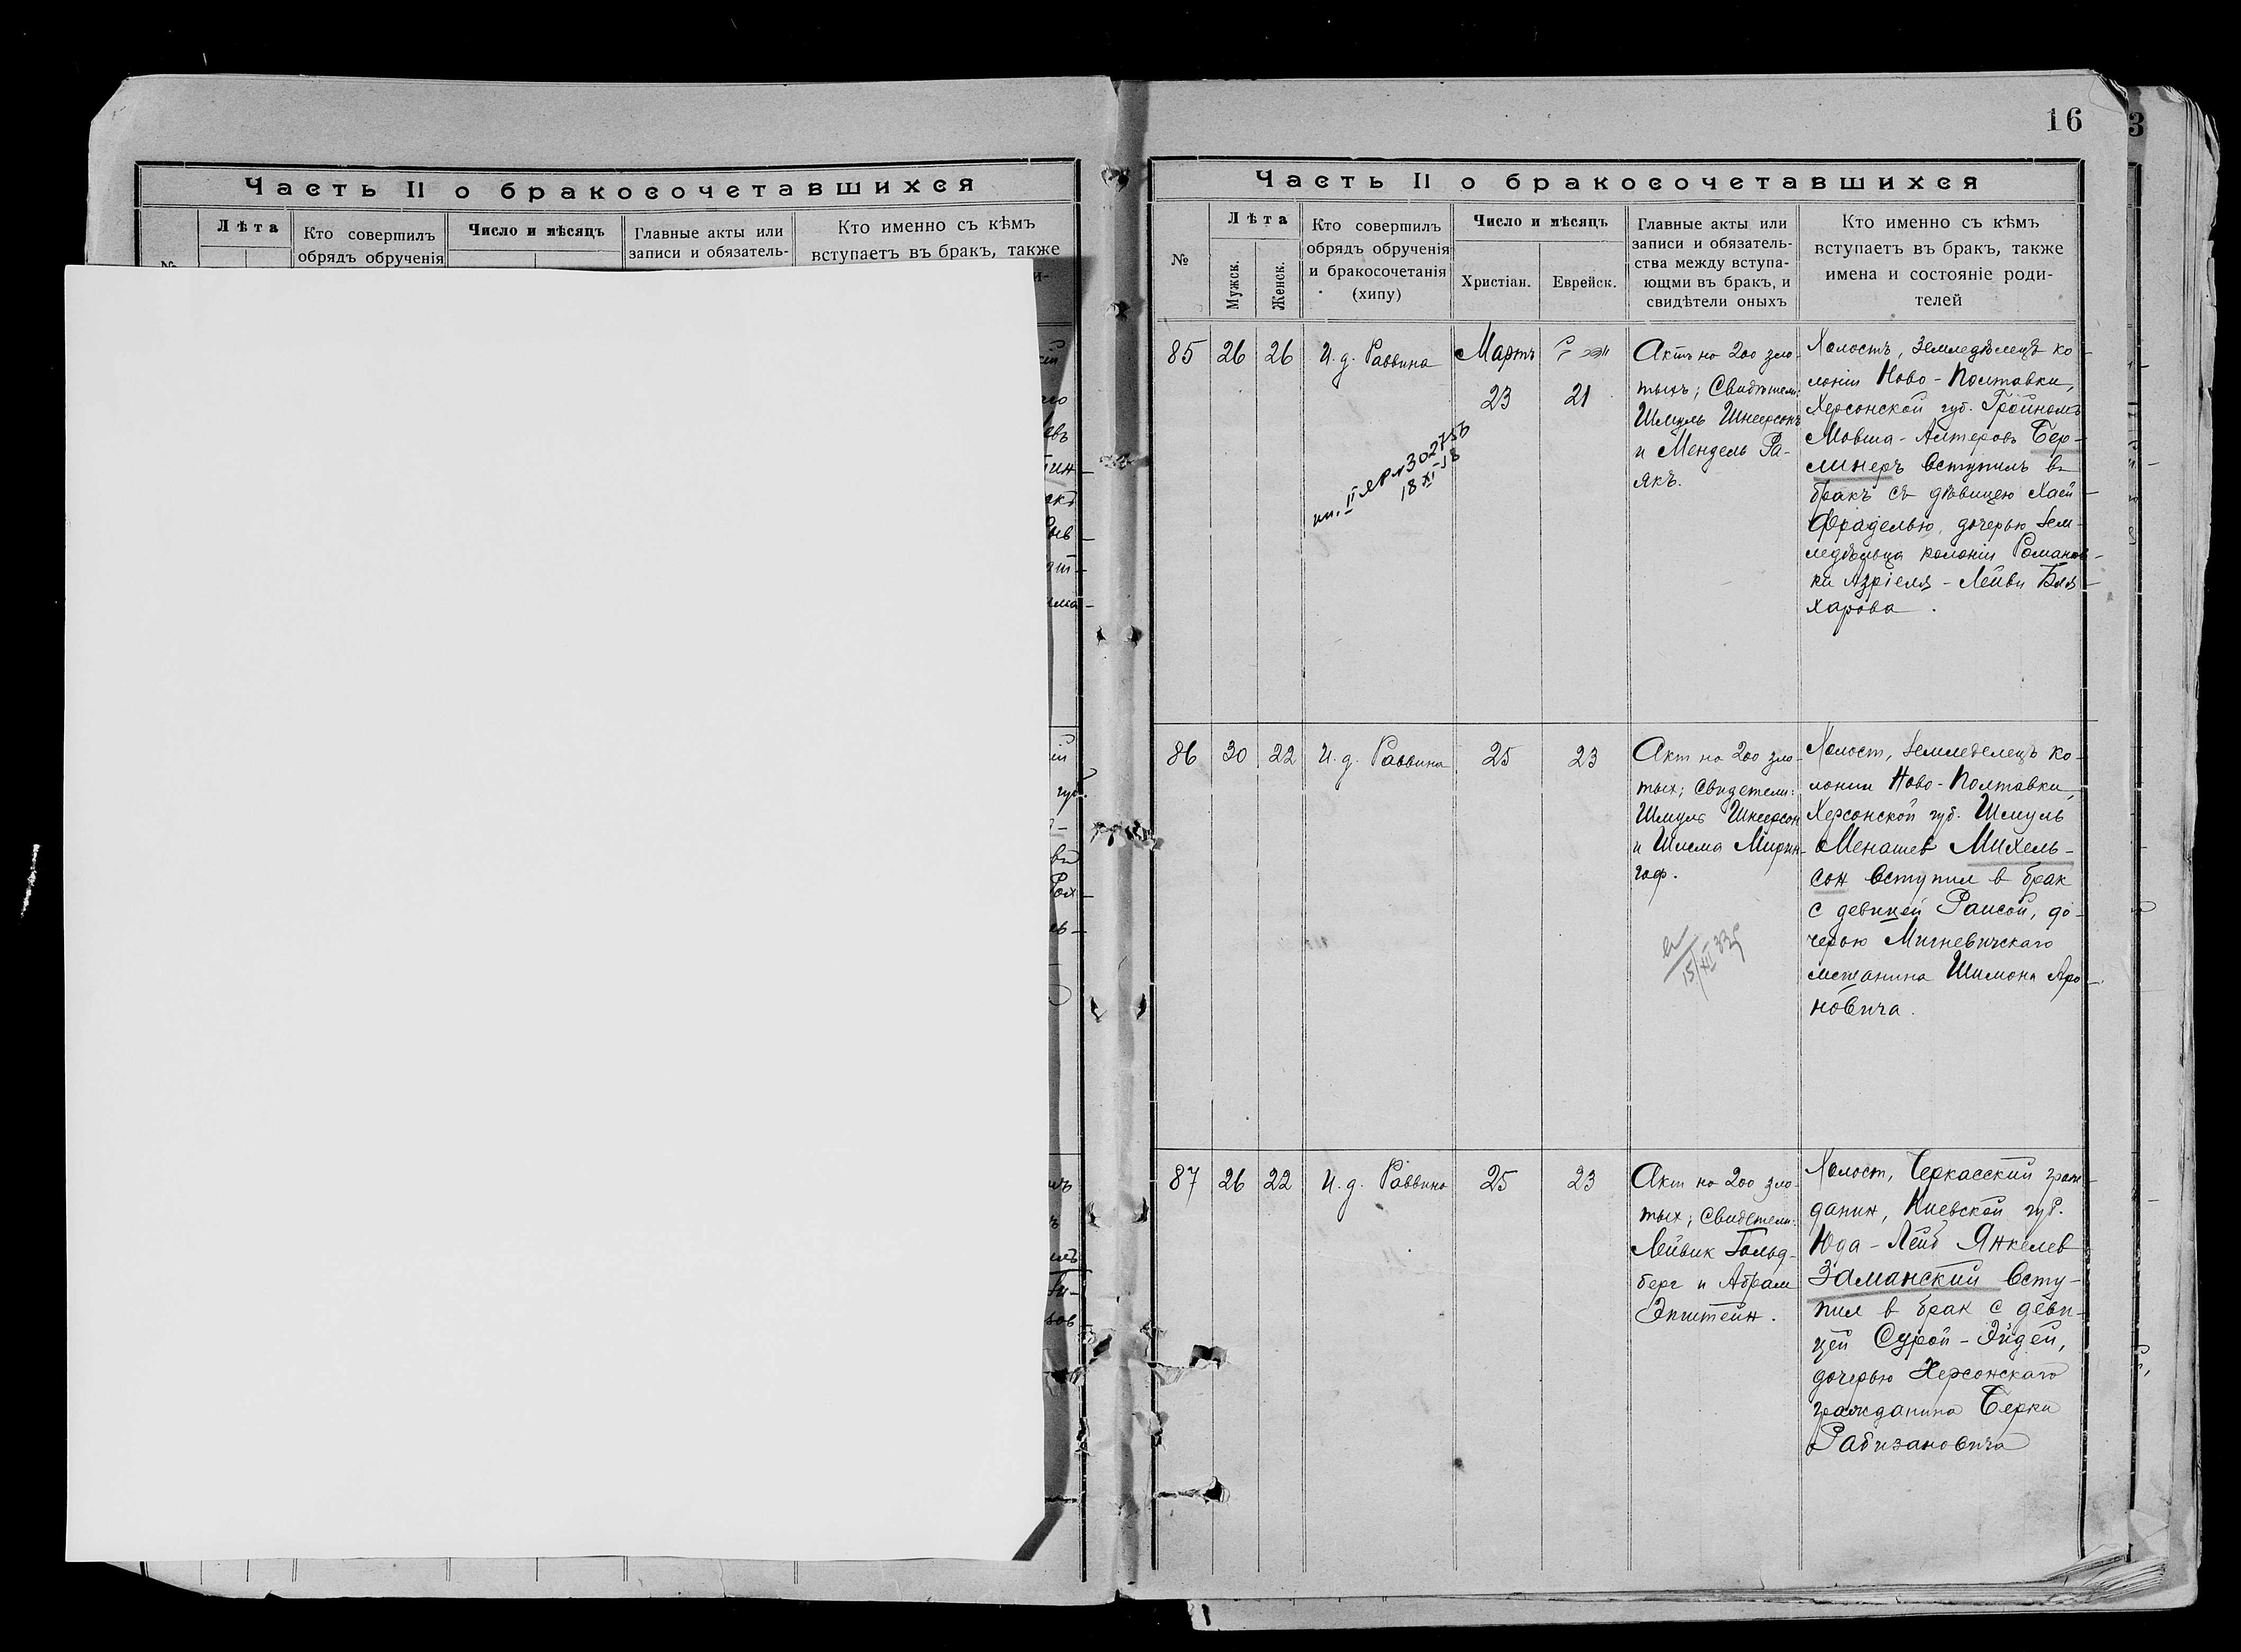 16
3
Часть II о бракосочетавшихся
Лѣта
Кто совершилъ
обрядъ обрученія
Число и мѣсяцъ
Главные акты или
записи и обязатель-
Кто именно съ кѣмъ
вступаетъ въ бракъ, также
Часть II о бракосочетавшихся
№
Лѣта
Мужск.
Женск.
Кто совершилъ
обрядъ обрученія
и бракосочетанія
(хипу)
Число и мѣсяцъ
Христіан.
Еврейск.
Главные акты или
записи и обязатель-
ства между вступа-
ющми въ бракъ, и
свидѣтели оныхъ
Кто именно съ кѣмъ
вступаетъ въ бракъ, также
имена и состояніе роди-
телей
85
26
26
И. д. Раввина
Мартъ
23
21
18 XI
Актъ на 200 зло-
тыхъ; Свидѣтели:
Шмуль Шнеерсонъ
и Мендель Ра-
якъ.
Холостъ, земледѣлецъ ко-
лоніи Ново-Полтавки,
Херсонской губ. Гройномъ
Мовша-Алтеровъ Бер-
линеръ вступилъ въ
бракъ съ дѣвицею Хаей
Фраделью, дочерью зем-
ледѣльца колоніи Романов-
ки Азріеля-Лейви Бля
харова.
86
30
22
И. д. Раввина
25
23
Акт на 200 зло-
тых; Свидетели:
Шмуль Шнеерсон
и Шлема Мирин-
гоф.
15/XII 33
Холост, земледелецъ ко-
лонии Ново-Полтавки,
Херсонской губ. Шмуль
Менашев Михель-
сон вступил в брак
с девицей Раисой, до-
черью
мещанина Шимона Аро-
новича.
87
26
22
И. д. Раввина
25
23
Акт на 200 зло-
тых; Свидетели:
Лейвик Гольд-
берг и Абрам
Эпштейн.
Холост, Черкасский граж-
данин, Киевской губ.
Юда-Лейб Янкелев
Заманский всту-
пил в брак с деви-
цей Сурой-Эйдей,
дочерью Херсонскаго
гражданина Берки
Рабизановича